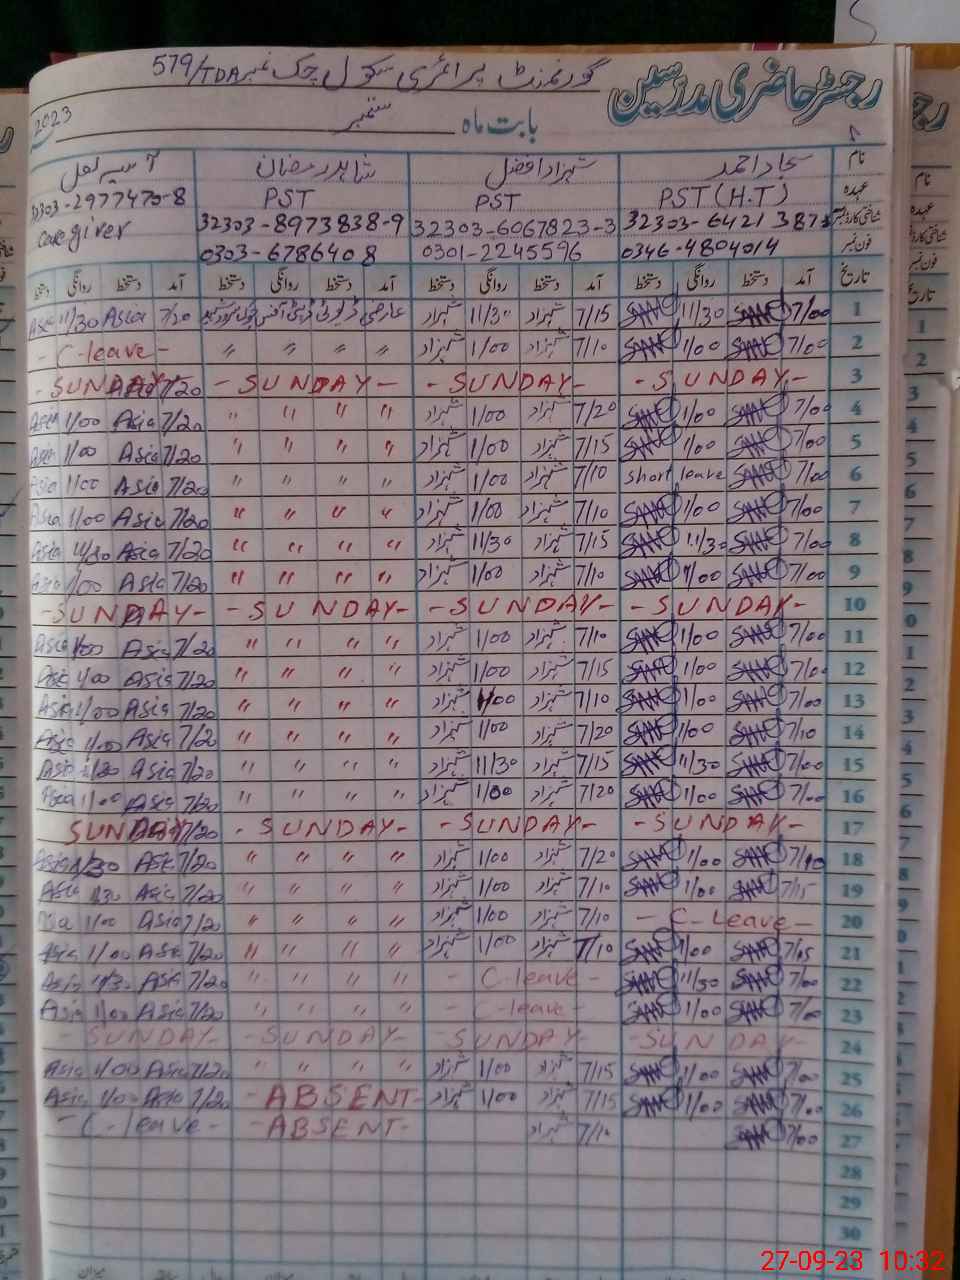 رجسٹر حاضری مدرسین
گورنمنٹ پرائمری سکول چک نمبر 579/TDA
بابت ماہ ستمبر 2023
نام سجاد احمد شہزاد افضل شاہد رمضان آسیہ لعل
عہدہ PST (H.T) PST PST Caregiver
شناختی کارڈ نمبر 32303-6067823-3 32303-8973838-9 32303-2977470-8
فون نمبر 0346-4804014 0301-2245596 0303-6786408
تاریخ آمد دستخط روانگی دستخط آمد دستخط روانگی دستخط آمد دستخط روانگی دستخط آمد دستخط روانگی دستخط
1 7/00 11/30 7/15 شہزاد 11/30 شہزاد عارضی ڈیوٹی 7/20 Asia 11/30 Asia
2 7/00 1/00 7/10 شہزاد 1/00 شہزاد " " " " - C-leave -
3 - SUNDAY - - SUNDAY - - SUNDAY - 7/20 - SUNDAY
4 7/00 1/00 7/20 شہزاد 1/00 شہزاد " " " " 7/20 Asia 1/00 Asia
5 7/00 1/00 7/15 شہزاد 1/00 شہزاد " " " " 7/20 Asia 1/00 Asia
6 7/00 short leave 7/10 شہزاد 1/00 شہزاد " " " " 7/20 Asia 1/00 Asia
7 7/00 1/00 7/10 شہزاد 1/00 شہزاد " " " " 7/20 Asia 1/00 Asia
8 7/00 11/30 7/15 شہزاد 11/30 شہزاد " " " " 7/20 Asia 11/30 Asia
9 7/00 1/00 7/10 شہزاد 1/00 شہزاد " " " " 7/20 Asia 1/00 Asia
10 - SUNDAY - - SUNDAY - - SUNDAY - - SUNDAY -
11 7/00 1/00 7/10 شہزاد 1/00 شہزاد " " " " 7/20 Asia 1/00 Asia
12 7/00 1/00 7/15 شہزاد 1/00 شہزاد " " " " 7/20 Asia 1/00 Asia
13 7/00 1/00 7/10 شہزاد 1/00 شہزاد " " " " 7/20 Asia 1/00 Asia
14 7/10 1/00 7/20 شہزاد 1/00 شہزاد " " " " 7/20 Asia 1/00 Asia
15 7/00 11/30 7/15 شہزاد 11/30 شہزاد " " " " 7/20 Asia 11/30 Asia
16 7/00 1/00 7/20 شہزاد 1/00 شہزاد " " " " 7/20 Asia 1/00 Asia
17 - SUNDAY - - SUNDAY - - SUNDAY - 7/20 SUNDAY
18 7/10 1/00 7/20 شہزاد 1/00 شہزاد " " " " 7/20 Asia Asia
19 7/15 1/00 7/10 شہزاد 1/00 شہزاد " " " " 7/20 Asia Asia
20 - C-Leave - 7/10 شہزاد 1/00 شہزاد " " " " 7/20 Asia 1/00 Asia
21 7/05 1/00 7/10 شہزاد 1/00 شہزاد " " " " 7/20 Asia 1/00 Asia
22 7/00 11/30 - C-leave - " " " " 7/20 Asia 11/30 Asia
23 7/00 1/00 - C-leave - " " " " 7/20 Asia 1/00 Asia
24 - SUNDAY - - SUNDAY - - SUNDAY - - SUNDAY -
25 7/00 1/00 7/15 شہزاد 1/00 شہزاد " " " " 7/20 Asia 1/00 Asia
26 7/00 1/00 7/15 شہزاد 1/00 شہزاد - ABSENT - 7/20 Asia 1/00 Asia
27 7/00 7/10 شہزاد - ABSENT - - C-leave -
28
29
30
27-09-23 10:32